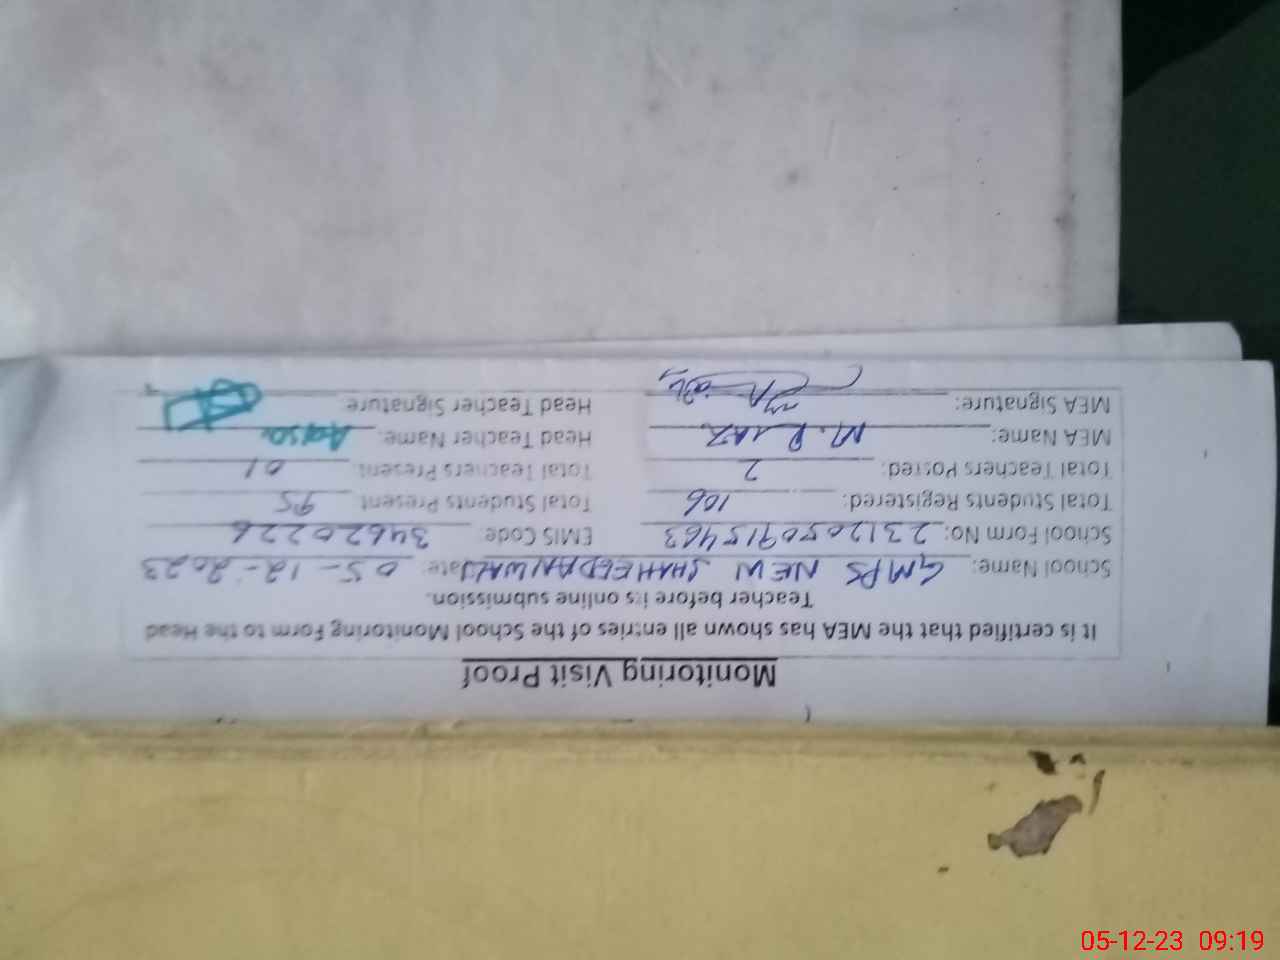 Monitoring Visit Proof
It is certified that the MEA has shown all entries of the School Monitoring Form to the Head
Teacher before its online submission.
School Name: GMPS NEW SHAHEEDANWALI Date: 05-12-2023
School Form No: 2312050915463 EMIS Code: 34620226
Total Students Registered: 106 Total Students Present 95
Total Teachers Posted: 2 Total Teachers Present: 01
MEA Name: M. Riaz Head Teacher Name: Aqsa
MEA Signature: Head Teacher Signature:
05-12-23 09:19